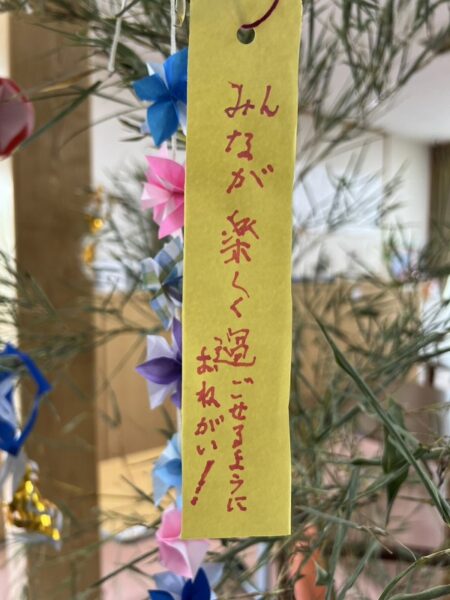 みんなが楽しく過ごせるように
おねがい！